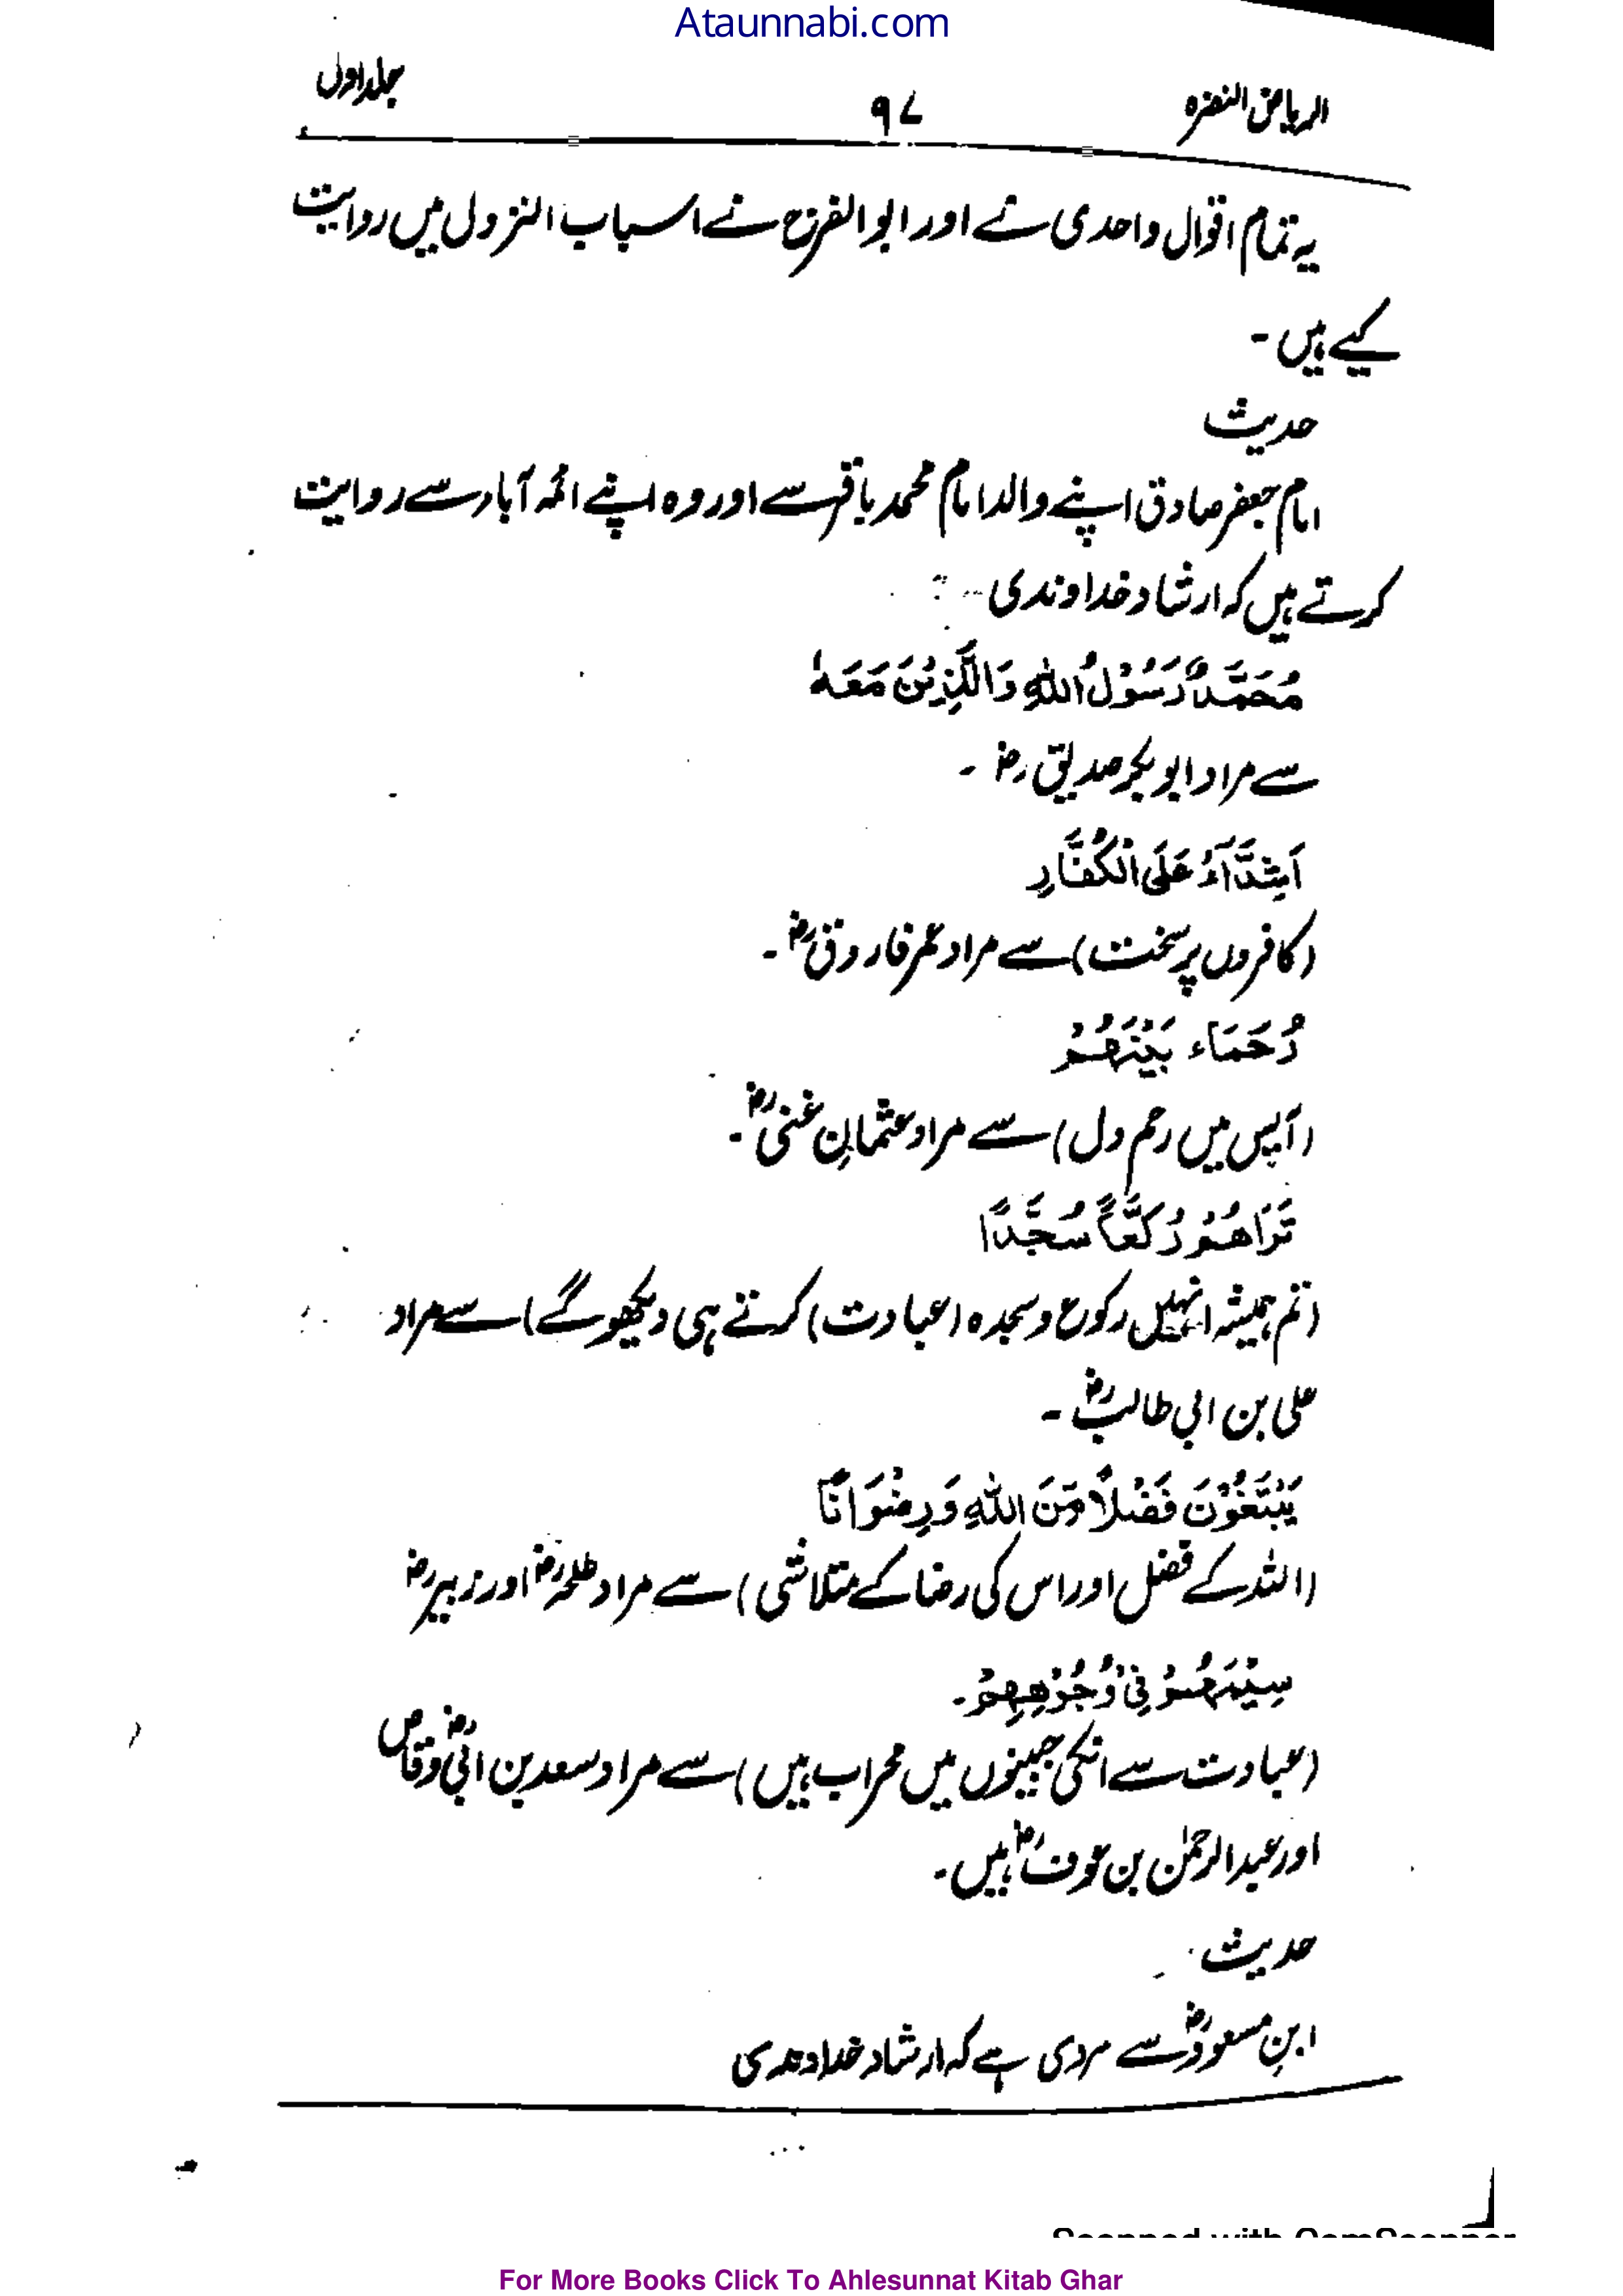 Ataunnabi.com
الریاض النضرہ ۹۷ جلد اول
یہ تمام اقوال واحدی نے اور ابوالفرح نے اسباب النزول میں روایت
کیے ہیں ۔
حدیث
امام جعفر صادق اپنے والد امام محمد باقر سے اور وہ اپنے ائمہ آباء سے روایت
کرتے ہیں کہ ارشاد خداوندی
مُحَمَّدٌ رَّسُوْلُ اللّٰهِ وَالَّذِیْنَ مَعَهٗ
سے مراد ابوبکر صدیق رضؓ ۔
اَشِدَّآءُ عَلَی الْکُفَّارِ
(کافروں پر سخت) سے مراد عمر فاروقؓ ۔
رُحَمَاء بَیْنَهُمْ
(آپس میں رحم دل) سے مراد عثمانِ غنیؓ ۔
تَرَاهُمْ رُکَّعًا سُجَّدًا
(تم ہمیشہ انہیں رکوع و سجدہ (عبادت) کرتے ہی دیکھو گے) سے مراد
علی بن ابی طالبؓ ۔
یَبْتَغُوْنَ فَضْلًا مِّنَ اللّٰهِ وَرِضْوَانًا
(اللہ کے فضل اور اس کی رضا کے متلاشی) سے مراد طلحہؓ اور زبیرؓ
سِیْمَهُمْ فِیْ وُجُوْهِهِمْ ۔
(عبادت سے انکی جبینوں میں محراب ہیں) سے مراد سعد بن ابی وقاصؓ
اور عبدالرحمٰن بن عوفؓ ہیں ۔
حدیث
ابنِ مسعودؓ سے مروی ہے کہ ارشاد خداوندی
Scanned with CamScanner
For More Books Click To Ahlesunnat Kitab Ghar